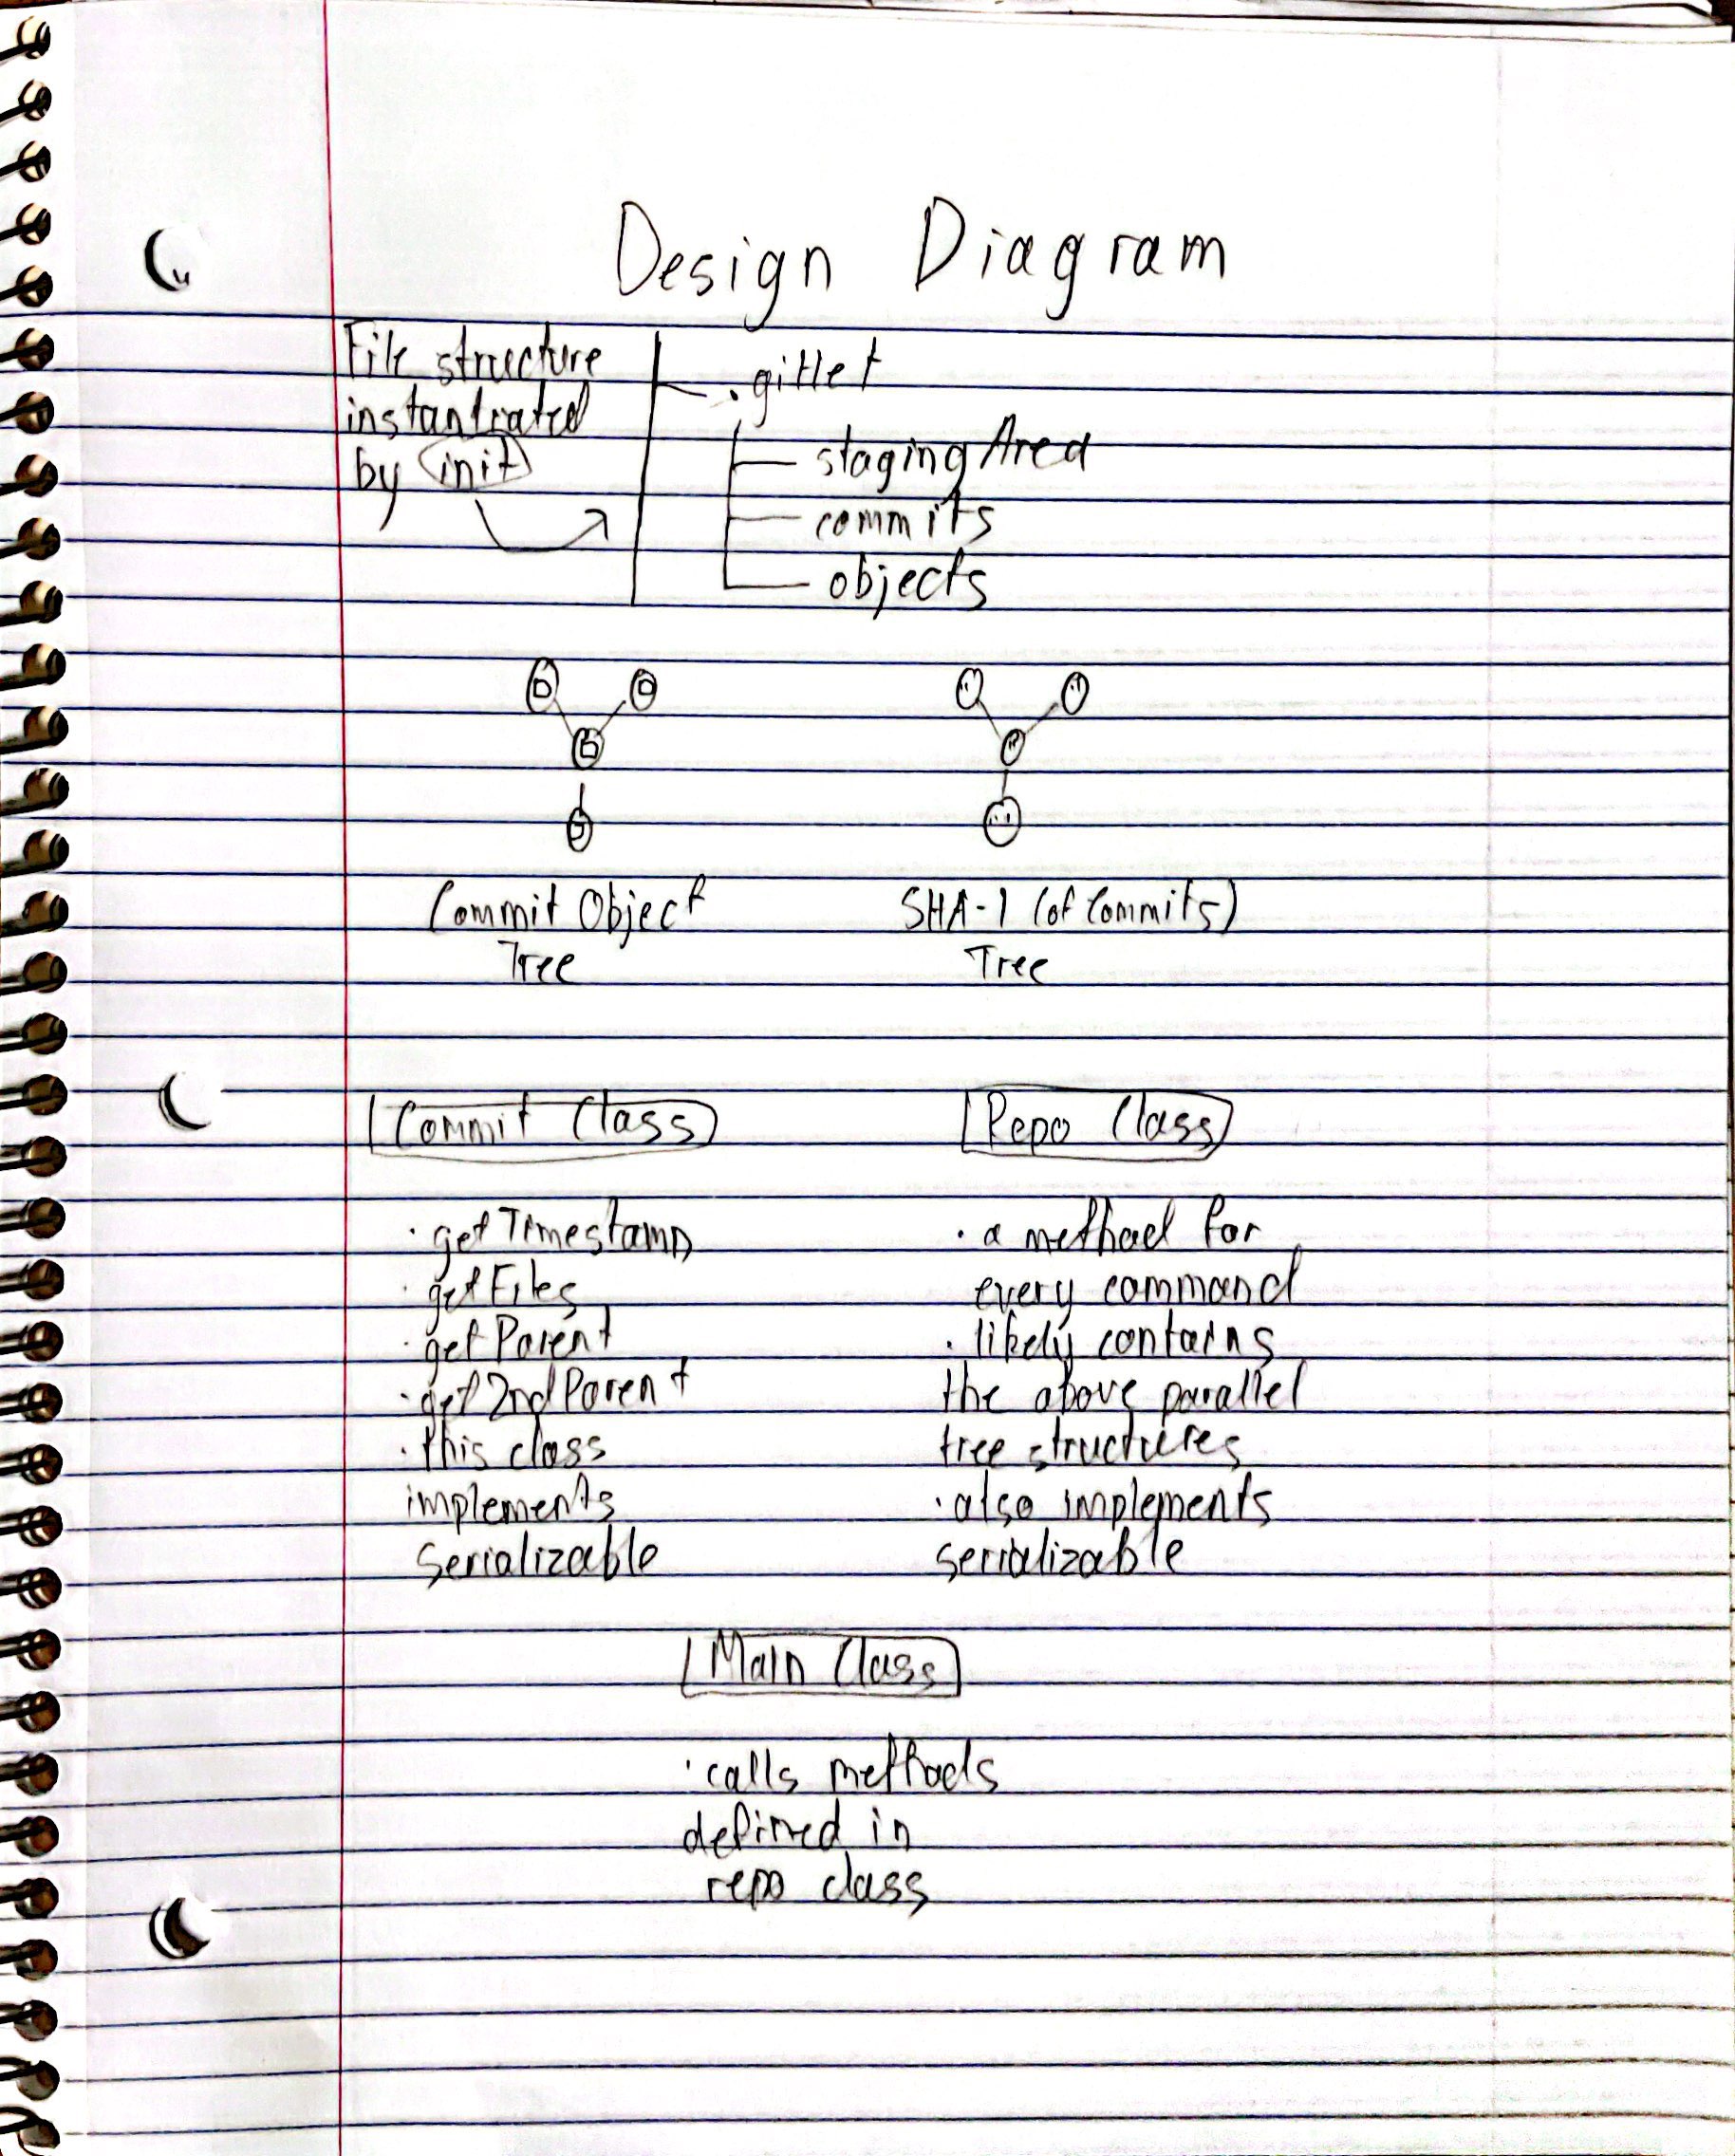 Design Diagram
File structure
instantiated
by init
.gitlet
staging Area
commits
objects
Commit Object
Tree
SHA-1 (of Commits)
Tree
Commit Class
· getTimestamp
· getFiles
· getParent
· get2ndParent
· this class
implements
Serializable
Repo Class
· a method for
every command
· likely contains
the above parallel
tree structures
· also implements
serializable
Main Class
· calls methods
defined in
repo class